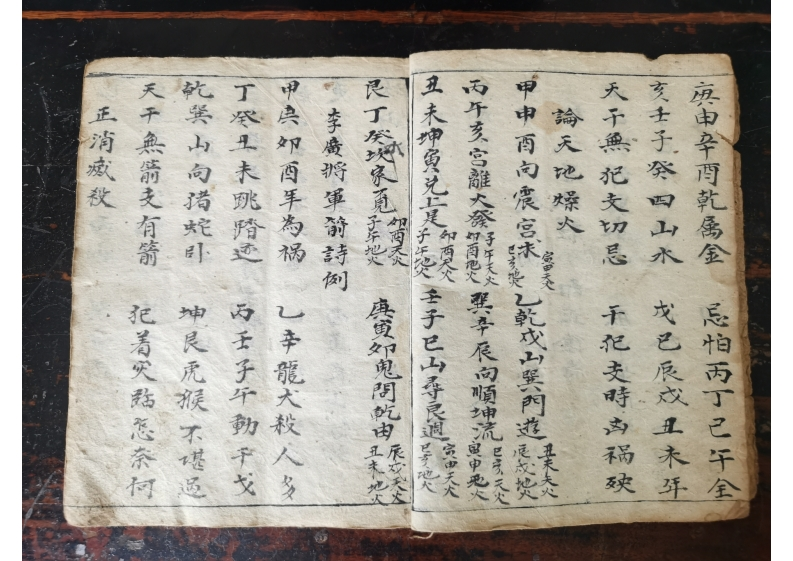 庚申辛酉乾属金 忌怕丙丁巳午全
亥壬子癸四山水 戊巳辰戌丑未年
天干無犯支切忌 干犯支時凶禍殃
論天地燥火
甲申酉向震宫求 寅申天火 巳亥地火 乙乾戌山巽門遊 丑未天火 辰戌地火
丙午亥宫離大發 子午天火 卯酉地火 巽辛辰向順坤流 巳亥天火 寅申地火
丑未坤寅兑上是 卯酉天火 子午地火 壬子巳山尋艮週 寅申天火 巳亥地火
艮丁癸坎家覓 卯酉天火 子午地火 庚寅卯鬼問乾由 辰戌天火 丑未地火
李廣將軍箭詩例
甲庚卯酉年為禍 乙辛龍犬殺人多
丁癸丑未跳踏逃 丙壬子午動干戈
乾巽山向猪蛇卧 坤艮虎猴不堪過
天干無箭支有箭 犯着灾臨怎奈何
正消滅殺